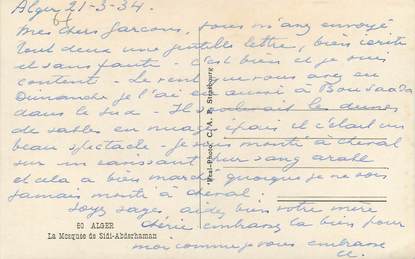 Alger 21-3-34.
Mes chers garçons, vous m'avez envoyé
tout deux une gentille lettre, bien écrite
et sans faute - C'est bien et je suis
content - Le vent que vous avez eu
Dimanche je l'ai eu aussi à Bousaada
dans le sud - Il soulevait les dunes
de sables en nuage épais et c'était un
beau spectacle - Je suis monté à cheval
sur un pur sang arabe
et cela a bien marché quoique je ne sois
jamais monté à cheval -
Soyez sages aidez bien votre mère
chérie embrassez la bien pour
moi comme je vous embrasse
60 ALGER
La Mosquée de Sidi-Abderhaman
Real-Photo C. A. P. Strasbourg